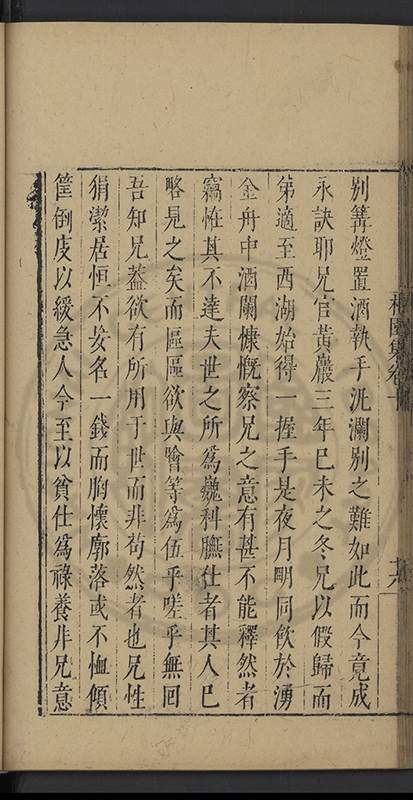 別篝燈置酒執手汍瀾別之難如此而今竟成
永訣耶兄官黃巖三年巳未之冬兄以假歸而
弟適至西湖始得一握手是夜月明同飲於湧
金舟中酒闌慷慨察兄之意有甚不能釋然者
竊恠其不達夫世之所爲巍科膴仕者其人巳
略見之矣而區區欲與噲等爲伍乎嗟乎無回
吾知兄葢欲有所用于世而非苟然者也兄性
狷潔居恒不妄名一錢而胸懷廓落或不恤傾
筐倒庋以緩急人今至以貧仕爲祿養非兄意